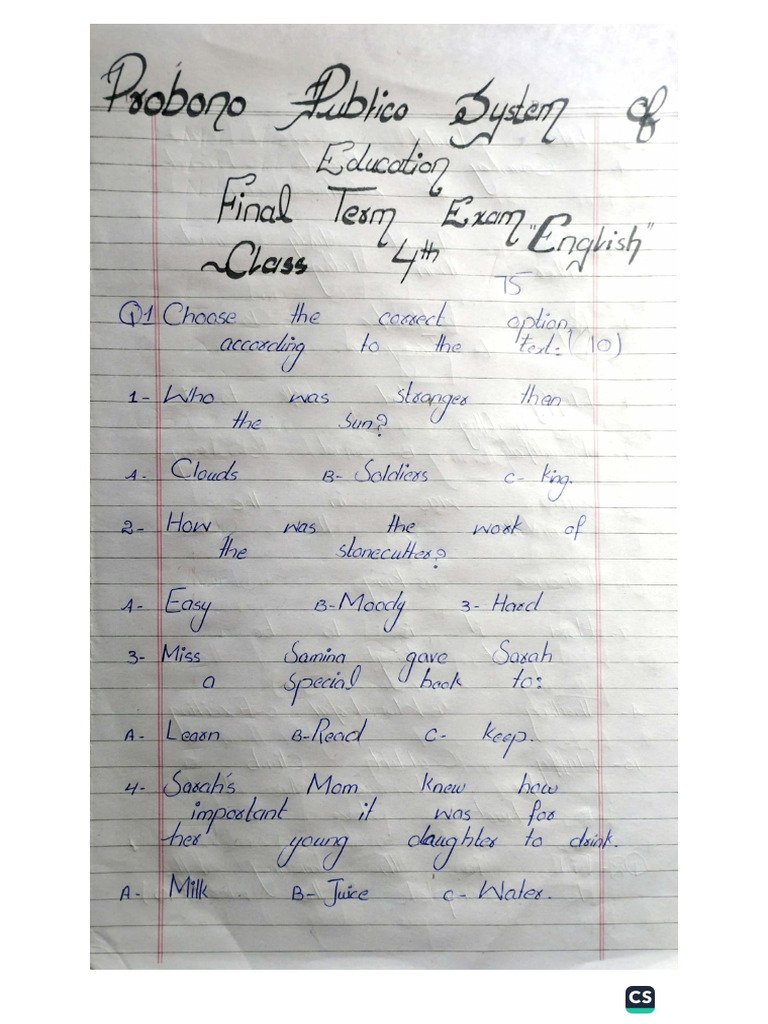 Probono Publico System of
Education
Final Term Exam "English"
~Class 4th
75
Q1 Choose the correct option,
according to the text: (10)
1- Who was stranger than
the sun?
A- Clouds B- Soldiers C- king.
2- How was the work of
the stonecutter?
A- Easy B- Moody 3- Hard
3- Miss Samina gave Sarah
a special book to:
A- Learn B- Read C- keep.
4- Sarah's Mom knew how
important it was for
her young daughter to drink.
A- Milk B- Juice C- Water.
CS